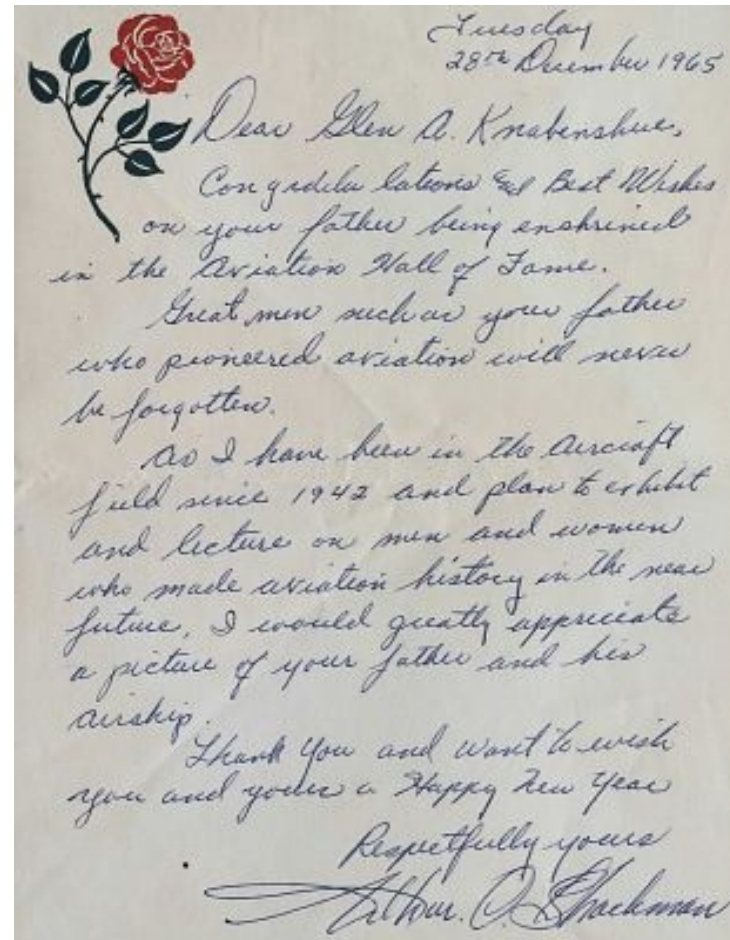 Tuesday
28th December 1965
Dear Glen A. Knabenshue,
Congidulations & Best Wishes
on your father being enshrined
in the Aviation Hall of Fame.
Great men such as your father
who pioneered aviation will never
be forgotten.
As I have been in the Aircraft
field since 1942 and plan to exhibit
and lecture on men and women
who made aviation history in the near
future, I would greatly appreciate
a picture of your father and his
airship.
Thank You and want to wish
you and yours a Happy New Year
Respectfully yours
Arthur. O. Shackman